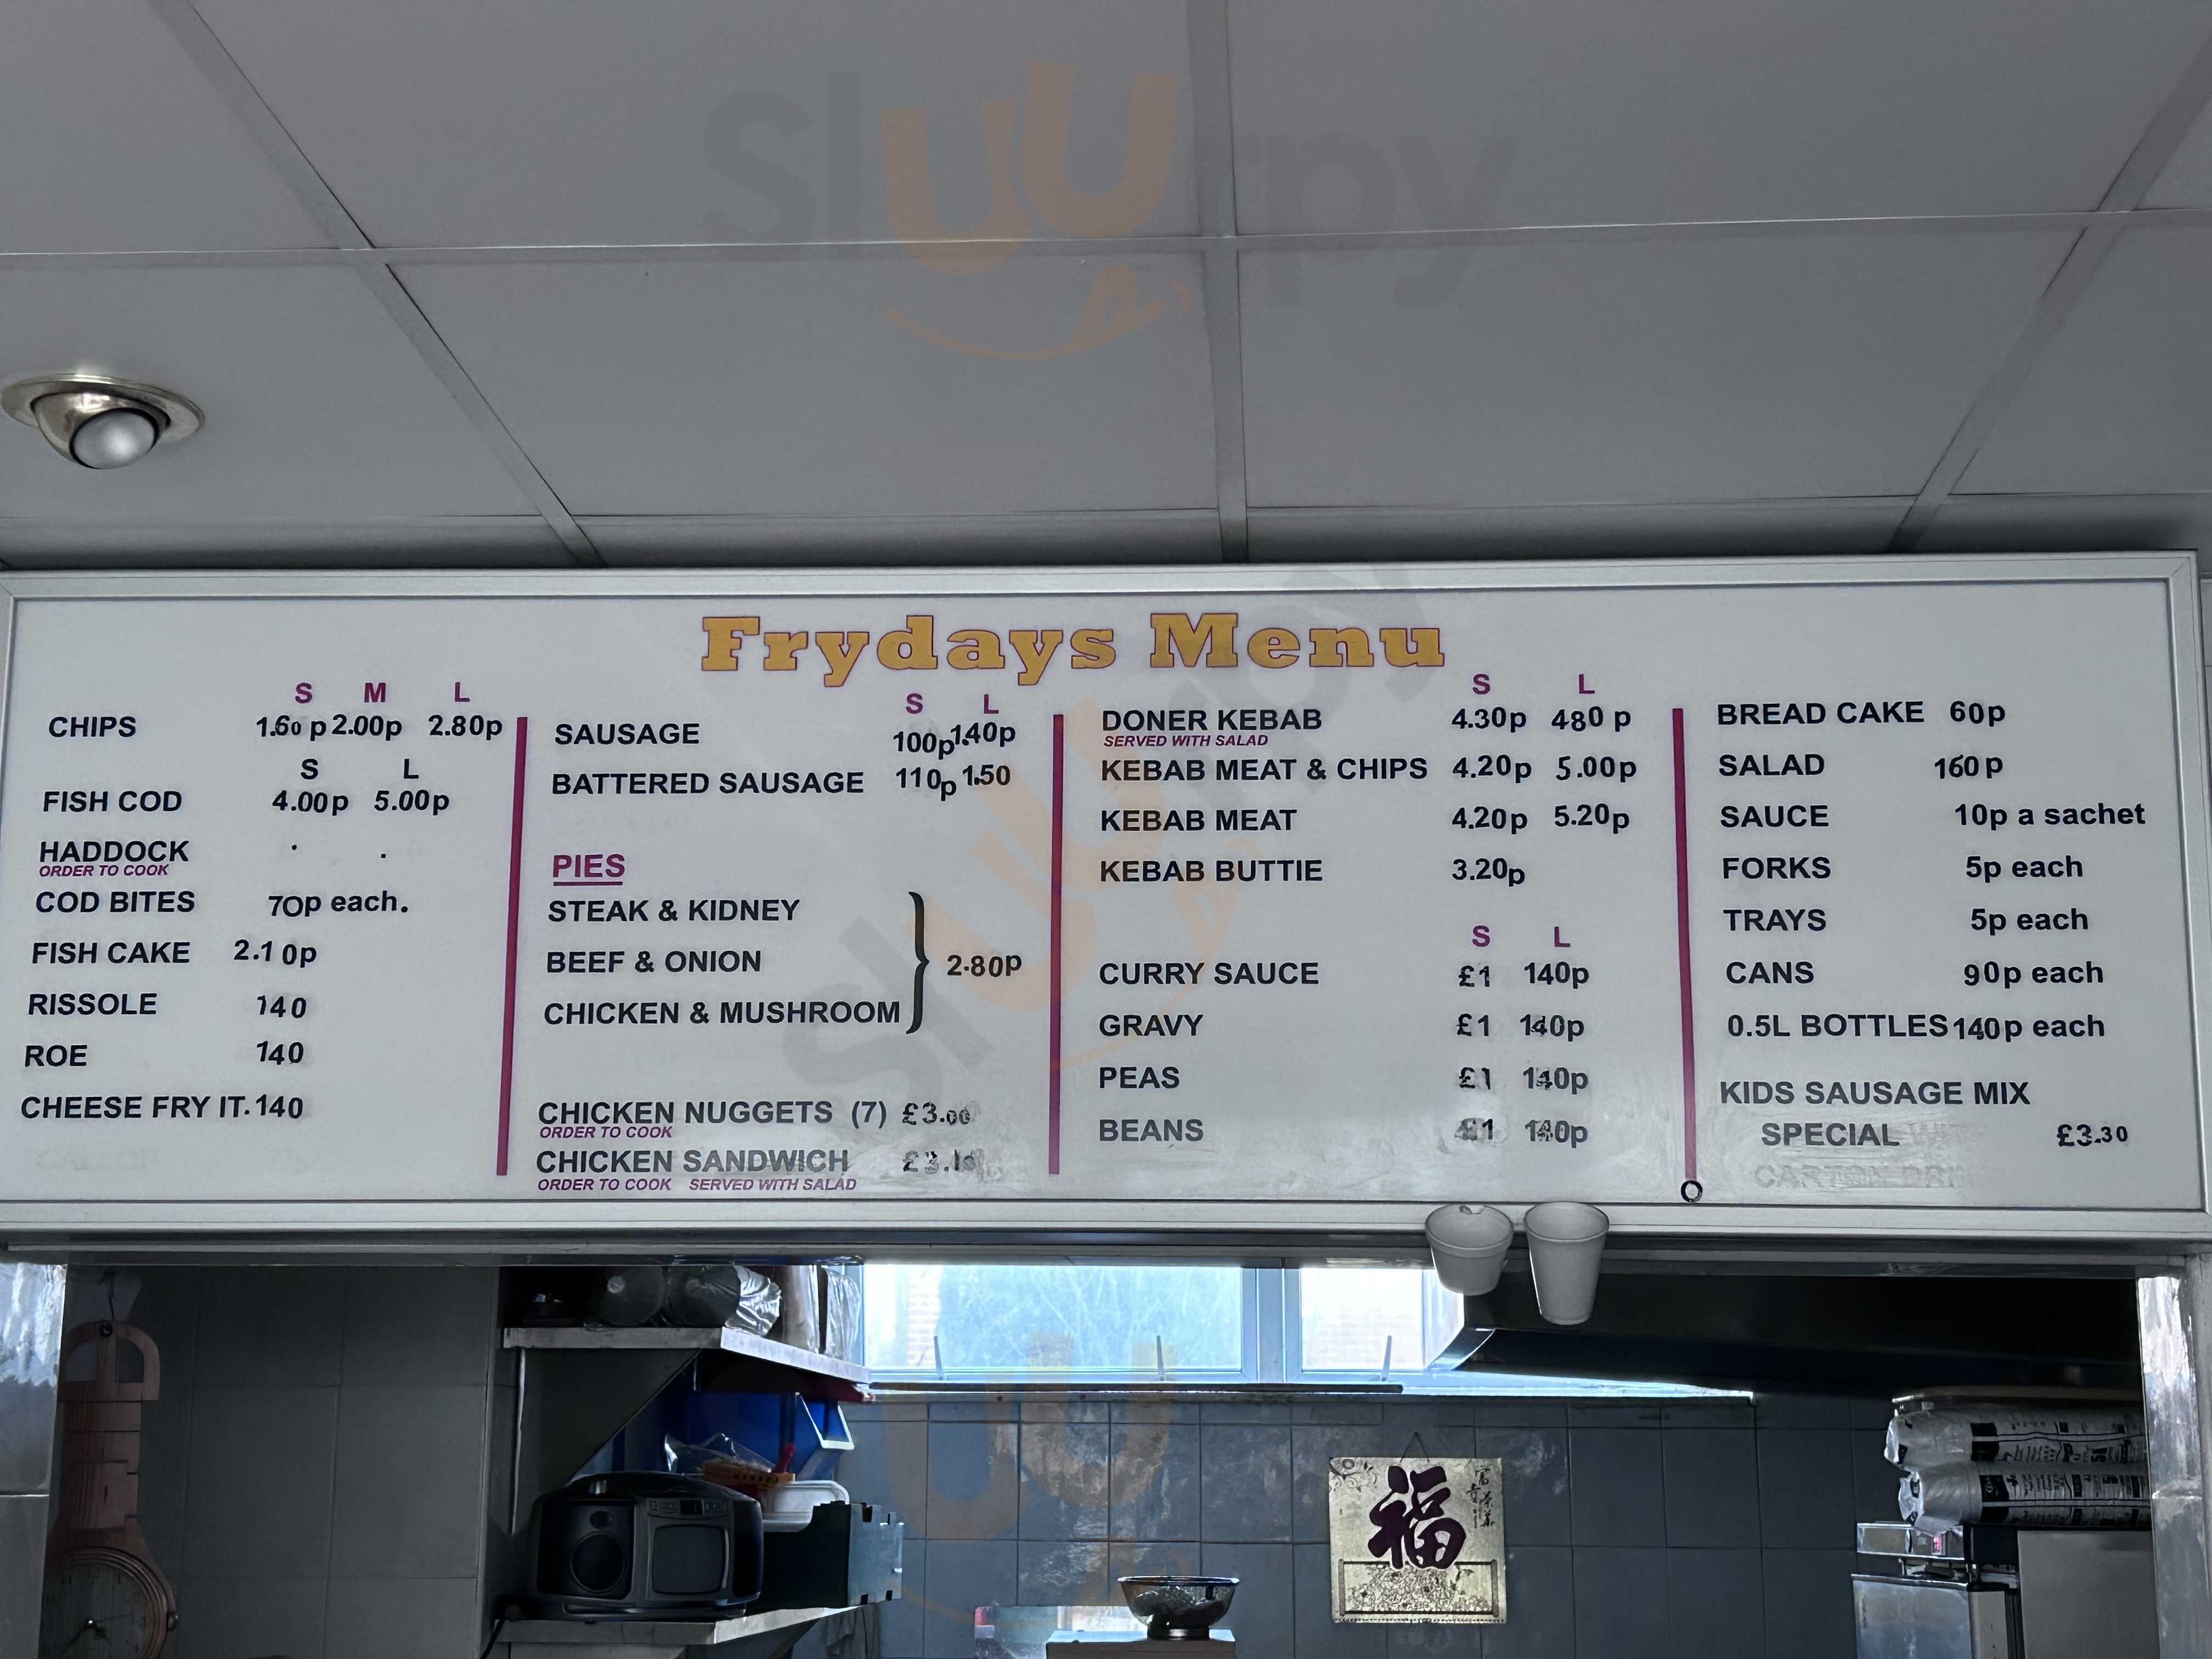 Sluurpy
Frydays Menu
S M L
CHIPS 1.60p 2.00p 2.80p
S L
FISH COD 4.00p 5.00p
HADDOCK
ORDER TO COOK
COD BITES 70p each.
FISH CAKE 2.10p
RISSOLE 140
ROE 140
CHEESE FRY IT. 140
S L
SAUSAGE 100p 1.40p
BATTERED SAUSAGE 110p 1.50
PIES
STEAK & KIDNEY
BEEF & ONION 2.80p
CHICKEN & MUSHROOM
CHICKEN NUGGETS (7) £3.00
ORDER TO COOK
CHICKEN SANDWICH
ORDER TO COOK SERVED WITH SALAD
S L
DONER KEBAB 4.30p 480p
SERVED WITH SALAD
KEBAB MEAT & CHIPS 4.20p 5.00p
KEBAB MEAT 4.20p 5.20p
KEBAB BUTTIE 3.20p
S L
CURRY SAUCE £1 140p
GRAVY £1 140p
PEAS £1 140p
BEANS £1 140p
BREAD CAKE 60p
SALAD 160p
SAUCE 10p a sachet
FORKS 5p each
TRAYS 5p each
CANS 90p each
0.5L BOTTLES 140p each
KIDS SAUSAGE MIX
SPECIAL £3.30
Sluurpy
福